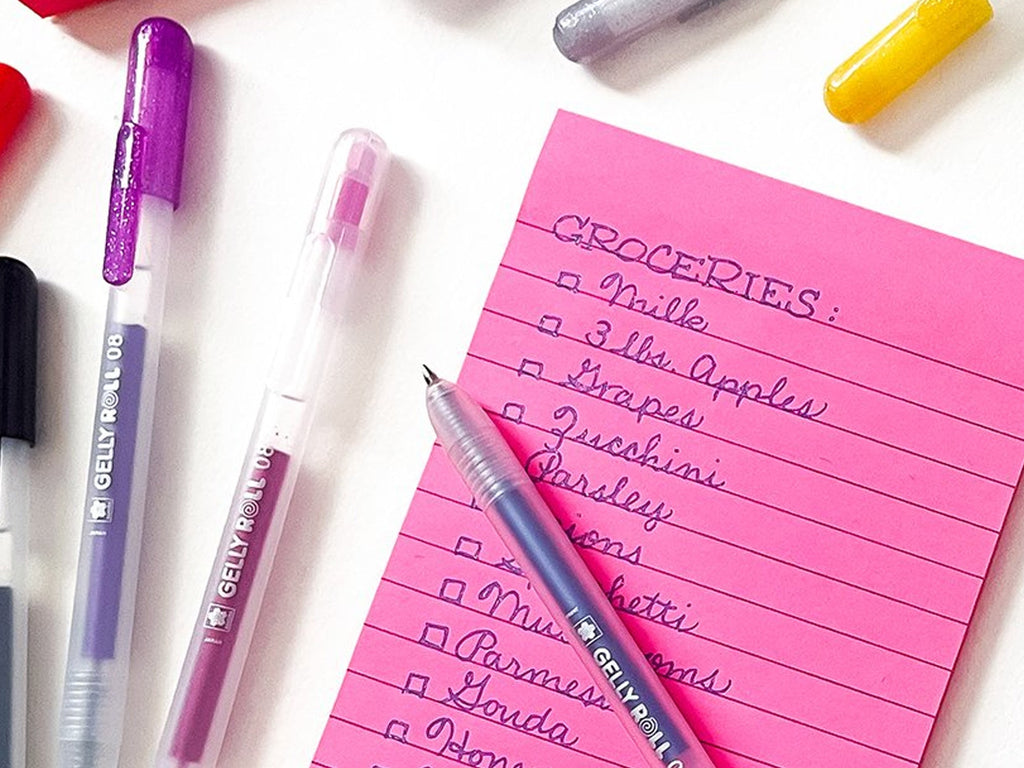 GROCERIES:
Milk
3 lbs. Apples
Grapes
Zucchini
Parsley
ions
hetti
Mu oms
Parmes
Gouda
Hone
GELLY ROLL 08
GELLY ROLL 08
JAPAN
GELLY ROLL 0